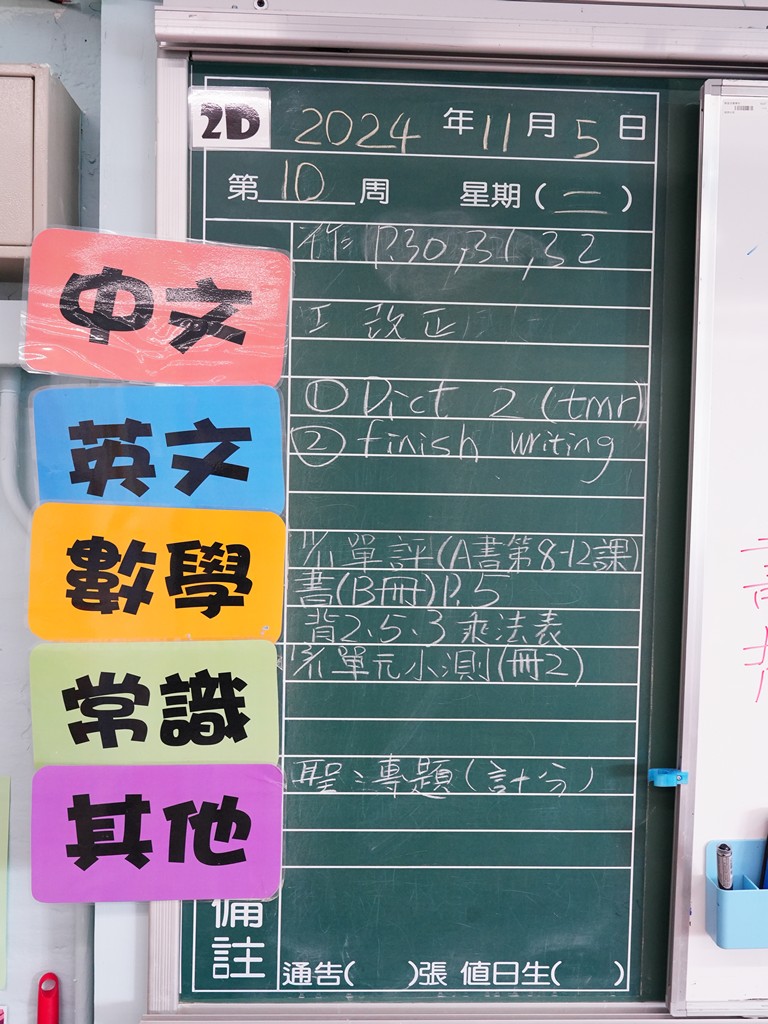 2D 2024 年 11 月 5 日
第 10 周 星期(二)
中文
作 P.30,31,32
工 改正
英文
① Dict 2 (tmr)
② finish writing
數學
單評(A書第8-12課)
書(B冊)P.5
背2、5、3乘法表
常識
單元小測(冊2)
其他
聖:專題(計分)
備註
通告( )張 值日生( )